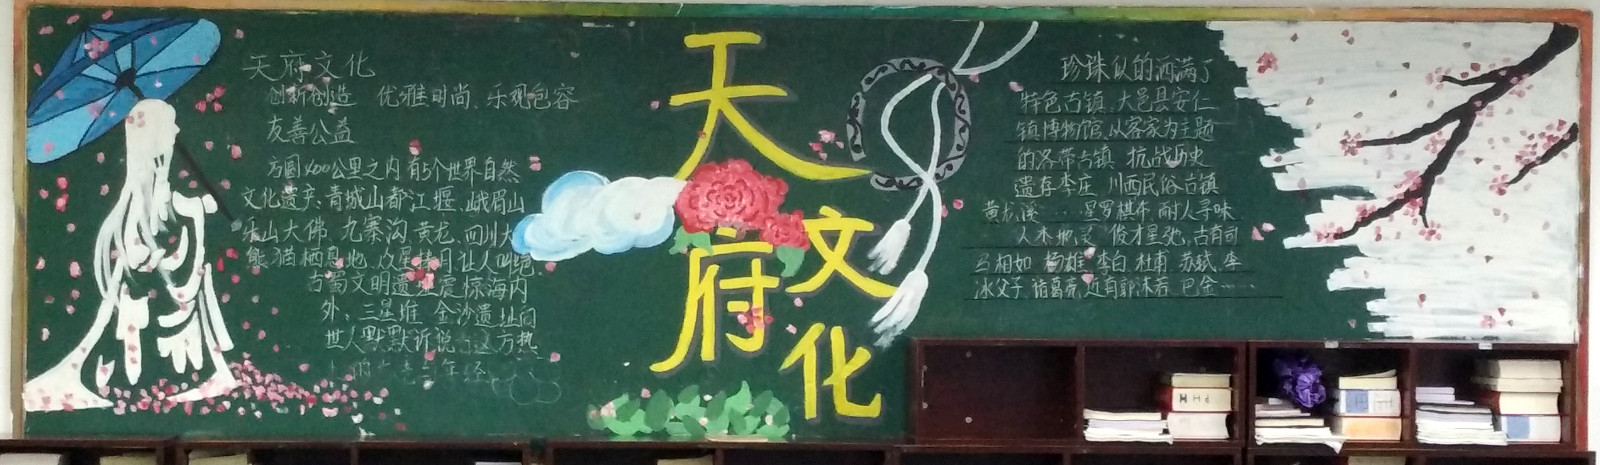 天府文化
创新创造 优雅时尚、乐观包容
友善公益
方圆400公里之内有5个世界自然
文化遗产:青城山都江堰、峨眉山
乐山大佛、九寨沟、黄龙、四川大
熊猫栖息地、众星捧月让人叫绝
古蜀文明遗址震惊海内
外、三星堆 金沙遗址向
世人默默诉说 这方热
天府文化
珍珠似的洒满了
特色古镇、大邑县安仁
镇博物馆、以客家为主题
的洛带古镇 抗战历史
遗存李庄、川西民俗古镇
黄龙溪……星罗棋布,耐人寻味
人杰地灵 俊才星驰,古有司
马相如 杨雄 李白 杜甫 苏轼、李
冰父子、诸葛亮,近有郭沫若、巴金……